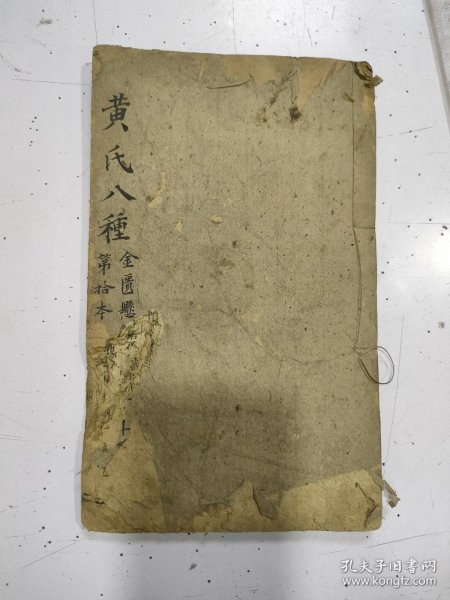 黄氏八種
金匱懸
第拾本
孔夫子旧书网
www.kongfz.com